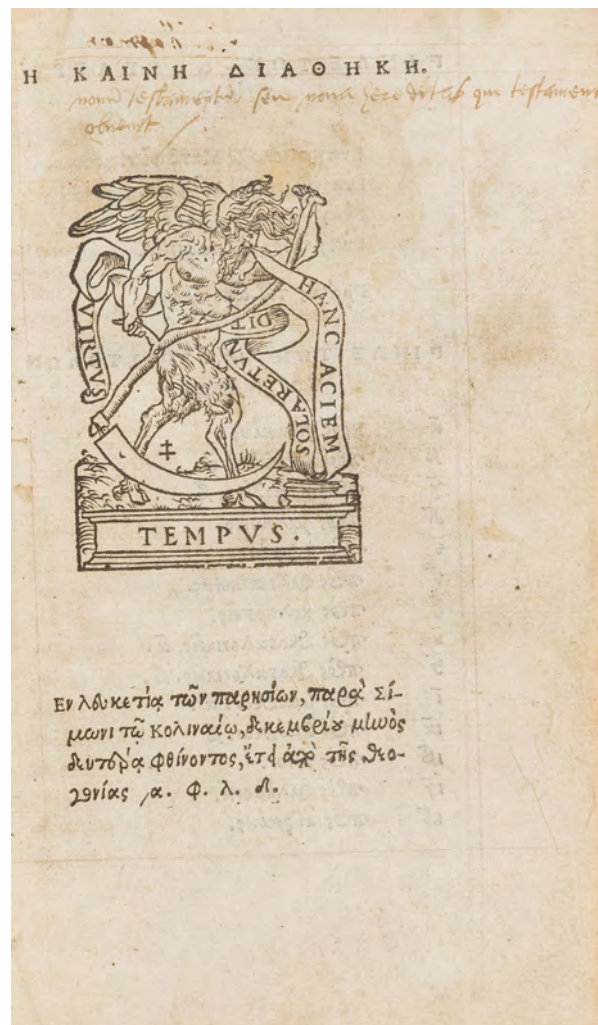 Η ΚΑΙΝΗ ΔΙΑΘΗΚΗ.
nouũ testamentũ seu noua hereditas qui testament
VIRTVS
HANC ACIEM
SOLA RETVN
DIT
TEMPVS.
Εν λευκετίᾳ τῶν παρησίων, παρὰ Σί-
μωνι τῷ Κολιναίῳ, δεκεμβρίου μηνὸς
δευτέρᾳ φθίνοντος, ἔτει ἀπὸ τῆς θεο-
γενίας ͵α. φ. λ. δ.